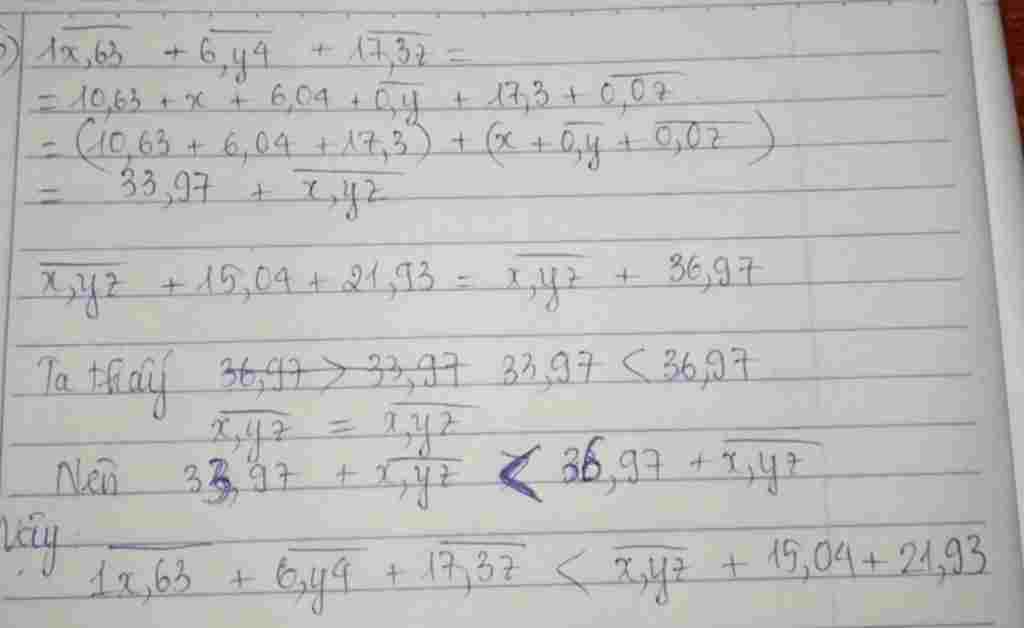 b) 1x,63 + 6,y4 + 17,3z =
= 10,63 + x + 6,04 + 0,y + 17,3 + 0,0z
= (10,63 + 6,04 + 17,3) + (x + 0,y + 0,0z)
= 33,97 + x,yz
x,yz + 15,04 + 21,93 = x,yz + 36,97
Ta thấy 36,97 > 33,97 33,97 < 36,97
x,yz = x,yz
Nên 33,97 + x,yz < 36,97 + x,yz
Vậy
1x,63 + 6,y4 + 17,3z < x,yz + 15,04 + 21,93